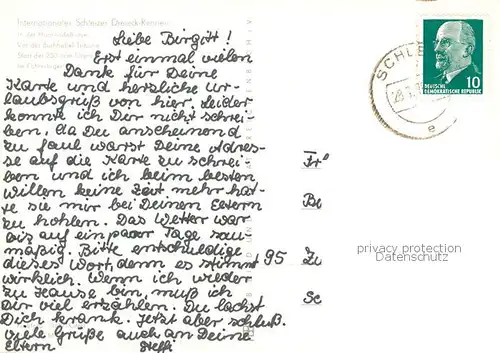 Internationales Schleizer Dreieck-Rennen
Liebe Birgitt!
Erst einmal vielen
Dank für Deine
Karte und herzliche Ur-
laubsgrüß von hier. Leider
konnte ich Dir nicht schrei-
ben, da Du anscheinond
zu faul warst Deine Adres-
se auf die Karte zu schrei-
ben und ich beim besten
Willen keine Zeit mehr hat-
te sie mir bei Deinen Eltern
zu hohlen. Das Wetter war
bis auf ein paar Tage sau-
mäßig. Bitte entschuldige
dieses Wort, denn es stimmt
wirklich. Wenn ich wieder
zu Hause bin, muß ich
Dir viel erzählen. Du lachst
Dich krank. Jetzt aber schluß.
viele Grüße auch an Deine
Eltern Steffi
SCHLE
e
10
DEUTSCHE
DEMOKRATISCHE REPUBLIK
Fr
Be
95 Zi
Sc
privacy protection
Datenschutz